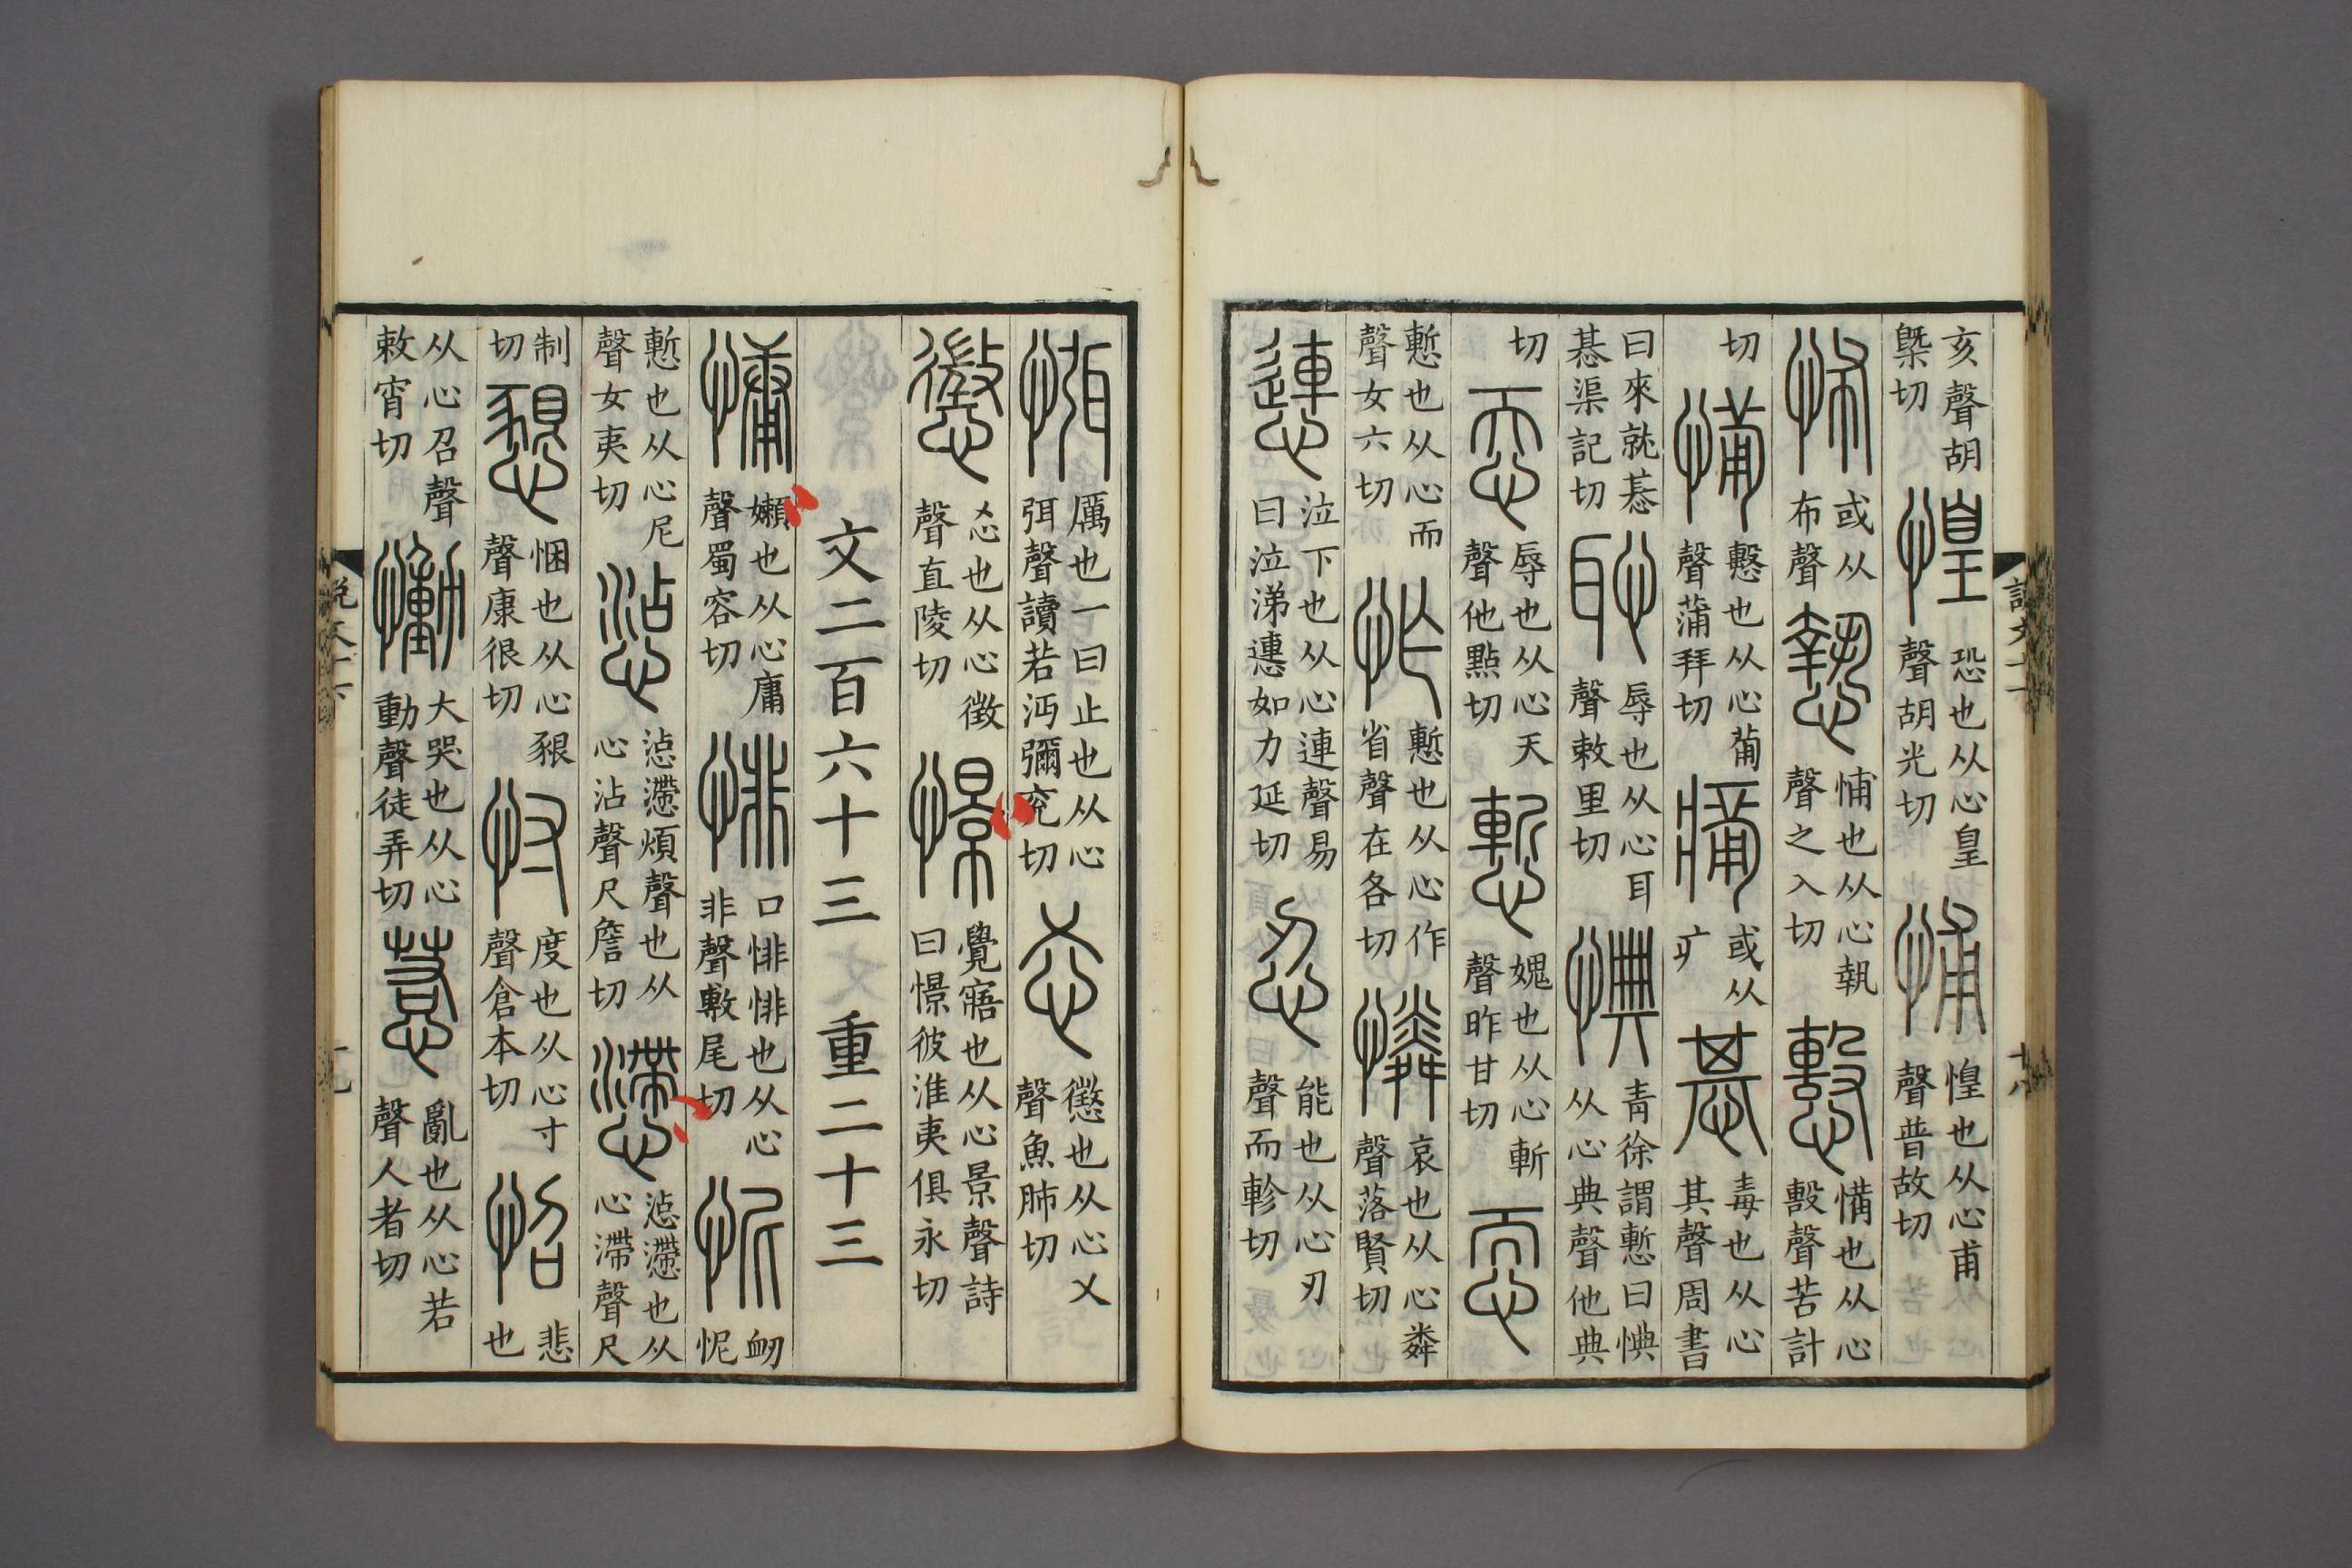 亥聲胡槩切 惶 恐也从心皇聲胡光切 悑 惶也从心甫聲普故切
怖 或从布聲 慹 悑也从心執聲之入切 也从心毄聲苦計
切 憊 也从心𤰈聲蒲拜切 或从疒 惎 毒也从心其聲周書
曰來就惎惎渠記切 恥 辱也从心耳聲敕里切 㥏 青徐謂慙曰㥏从心典聲他典
切 忝 辱也从心天聲他點切 慙 媿也从心斬聲昨甘切 恧
慙也从心而聲女六切 怍 慙也从心作省聲在各切 憐 哀也从心粦聲落賢切
㦁 泣下也从心連聲易曰泣涕㦁如力延切 忍 能也从心刃聲而軫切
說文十下
十八
㥝 厲也一曰止也从心弭聲讀若沔彌兖切 忢 懲也从心乂聲魚肺切
懲 忢也从心徵聲直陵切 憬 覺寤也从心景聲詩曰憬彼淮夷俱永切
文二百六十三 重二十三
慵 嬾也从心庸聲蜀容切 悱 口悱悱也从心非聲敷尾切 忯 𧖪怩
慙也从心尼聲女夷切 惉 惉懘煩聲也从心沾聲尺詹切 懘 惉懘也从心滯聲尺
制切 懇 悃也从心豤聲康很切 忖 度也从心寸聲倉本切 怊 悲也
从心召聲敕宵切 慟 大哭也从心動聲徒弄切 惹 亂也从心若聲人者切
說文十下
十九